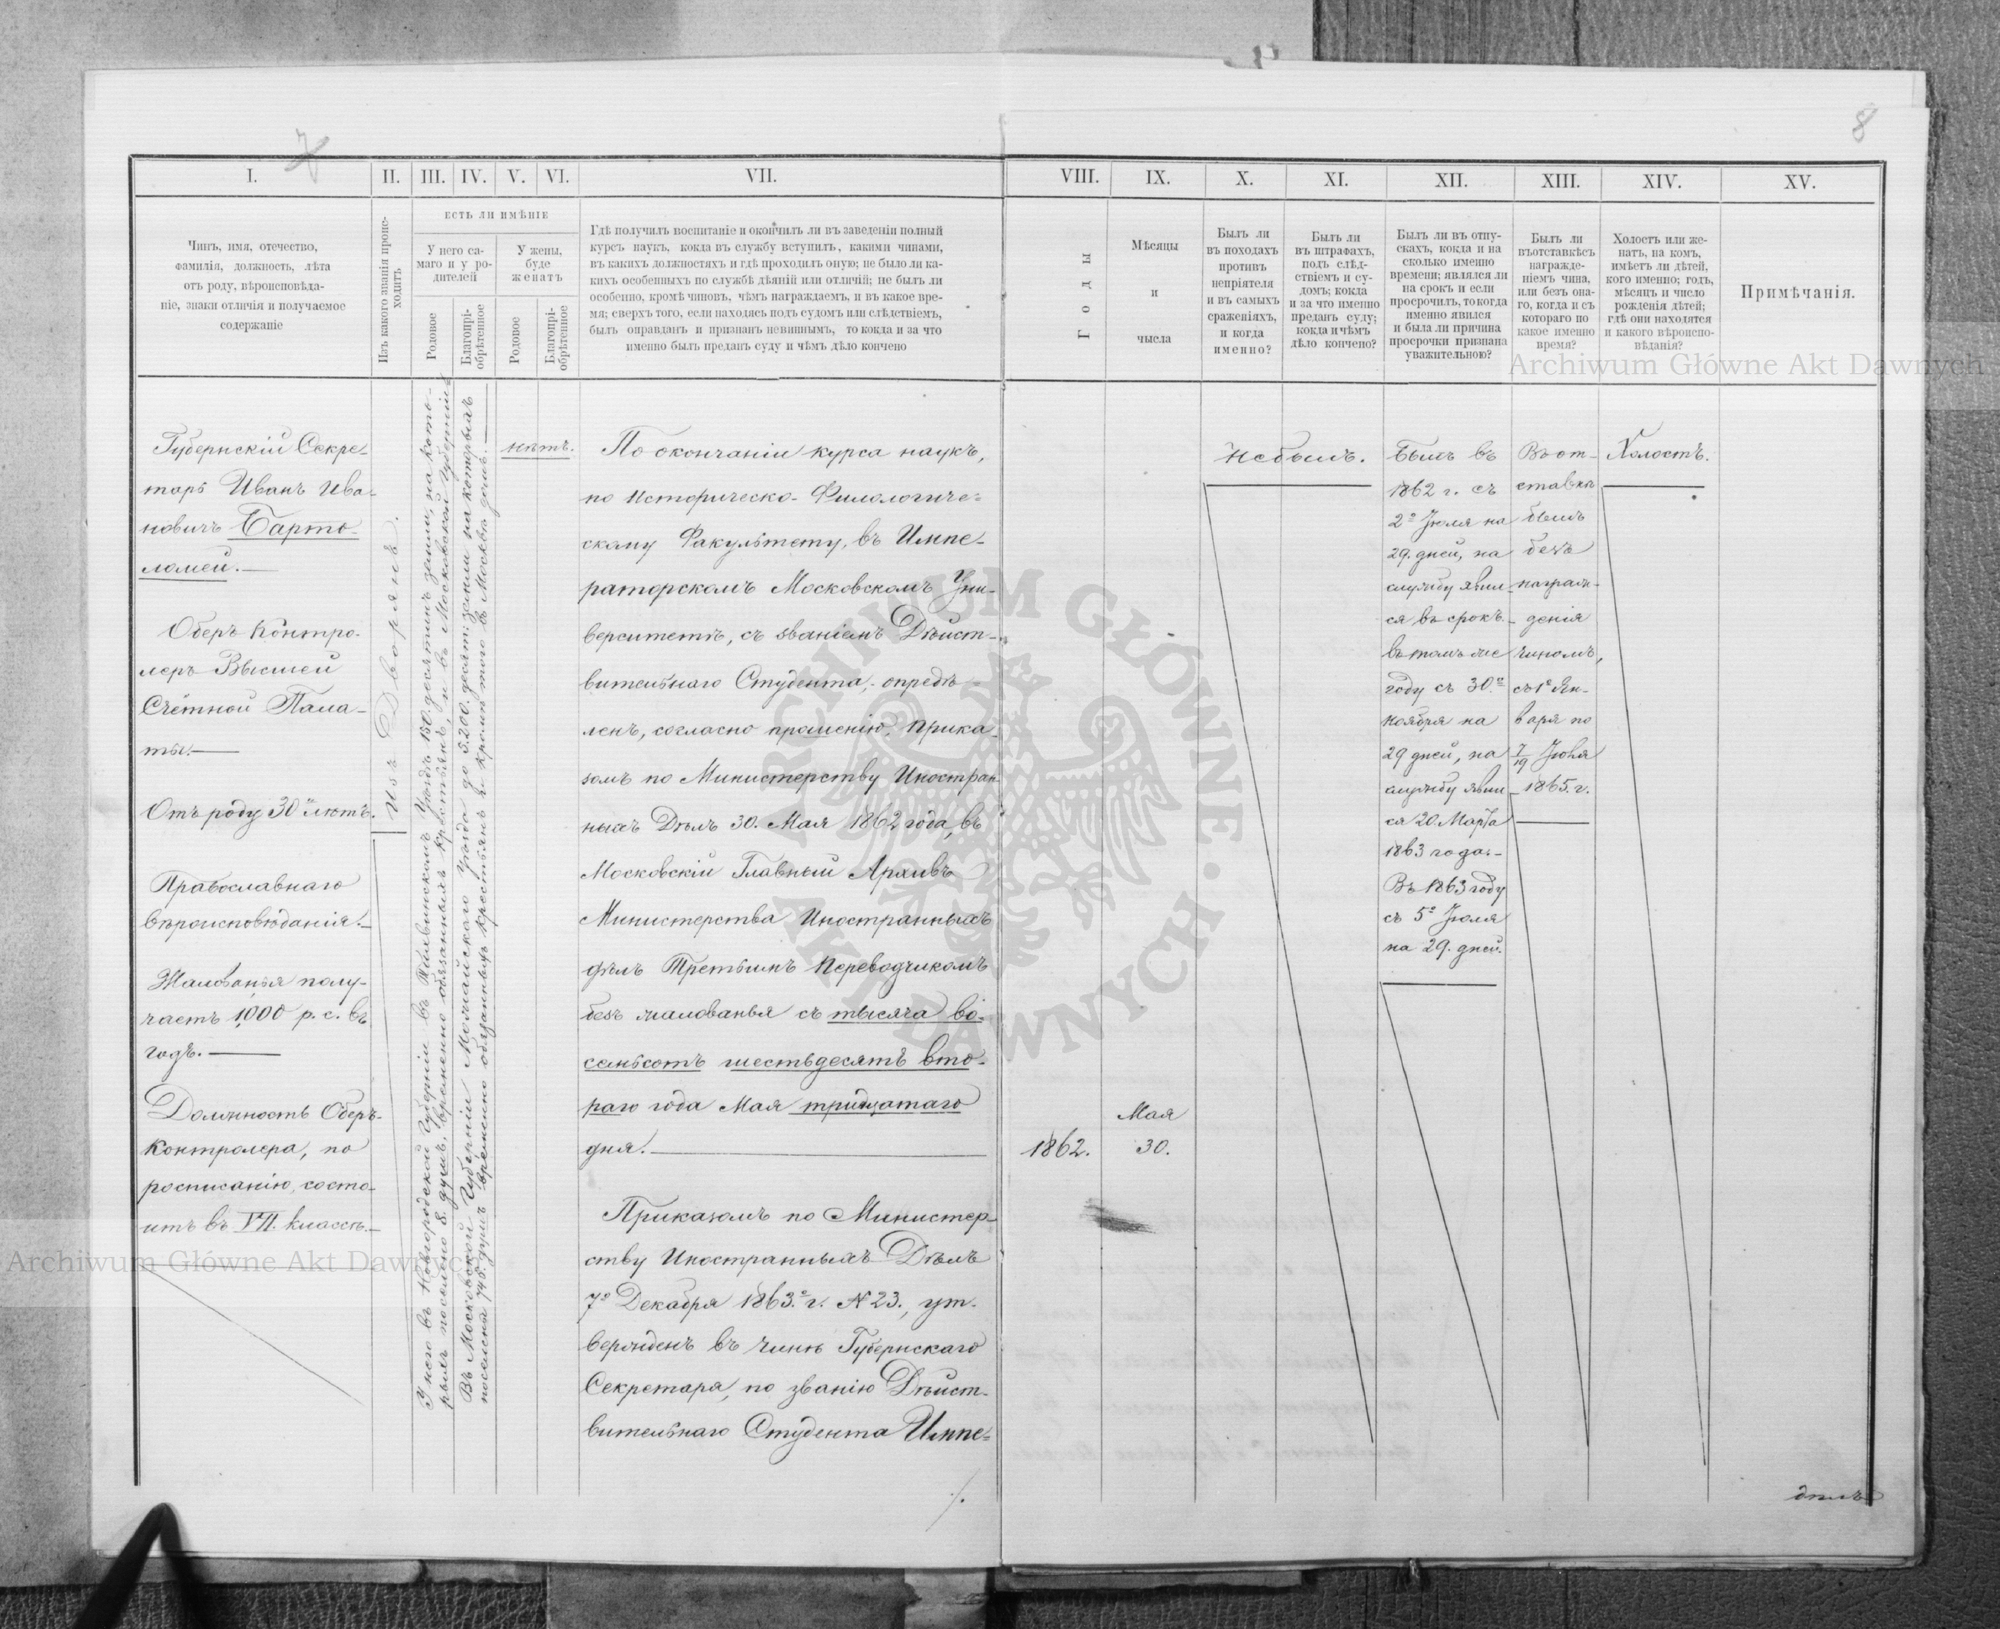 7
8
I.
II.
III.
IV.
V.
VI.
VII.
VIII.
IX.
X.
XI.
XII.
XIII.
XIV.
XV.
Чинъ, имя, отечество,
фамилія, должность, лѣта
отъ роду, вѣроисповѣда-
ніе, знаки отличія и получаемое
содержаніе
Изъ какого званія проис-
ходитъ
ЕСТЬ ЛИ ИМѢНІЕ
У него са-
маго и у ро-
дителей
У жены,
буде
женатъ
Родовое
Благопрі-
обрѣтенное
Родовое
Благопрі-
обрѣтенное
Гдѣ получилъ воспитаніе и окончилъ ли въ заведеніи полный
курсъ наукъ, когда въ службу вступилъ, какими чинами,
въ какихъ должностяхъ и гдѣ проходилъ оную; не было ли ка-
кихъ особенныхъ по службѣ дѣяній или отличій; не былъ ли
особенно, кромѣ чиновъ, чѣмъ награждаемъ, и въ какое вре-
мя; сверхъ того, если находясь подъ судомъ или слѣдствіемъ,
былъ оправданъ и признанъ невиннымъ, то когда и за что
именно былъ преданъ суду и чѣмъ дѣло кончено
Годы
Мѣсяцы
и
числа
Былъ ли
въ походахъ
противъ
непріятеля
и въ самыхъ
сраженіяхъ,
и когда
именно?
Былъ ли
въ штрафахъ,
подъ слѣд-
ствіемъ и су-
домъ; когда
и за что именно
преданъ суду;
когда и чѣмъ
дѣло кончено?
Былъ ли въ отпу-
скахъ, когда и на
сколько именно
времени; явился ли
на срокъ и если
просрочилъ, то когда
именно явился
и была ли причина
просрочки признана
уважительною?
Былъ ли
въ отставкѣ съ
награжде-
ніемъ чина,
или безъ она-
го, когда и съ
котораго по
какое именно
время?
Холостъ или же-
натъ, на комъ,
имѣетъ ли дѣтей,
кого именно; годъ,
мѣсяцъ и число
рожденія дѣтей;
гдѣ они находятся
и какого вѣроиспо-
вѣданія?
Примѣчанія.
Archiwum Główne Akt Dawnych
Губернскій Секре-
тарь Иванъ Ива-
новичъ Барто-
ломей.
Оберъ Контро-
леръ Высшей
Счетной Пала-
ты.
Отъ роду 30ти лѣтъ.
Православнаго
вѣроисповѣданія.
Жалованья полу-
чаетъ 1,000 р. с. въ
годъ.
Должность Оберъ-
Контролера, по
росписанію состо-
итъ въ VII. классѣ.
Изъ Дворянъ.
У него въ Новгородской Губерніи въ Уѣздѣ 150 десятинъ земли, на кото-
рыхъ поселено 8. душъ, временно обязанныхъ крестьянъ, и въ Московской Губерніи
Въ Московской Губерніи Можайскаго уѣзда до 3.200. десят: земли на которыхъ
поселены душъ временно обязанныхъ крестьянъ и кромѣ того въ Москвѣ домъ.
нѣтъ.
По окончаніи курса наукъ,
по Историческо-Филологиче-
скому Факультету, въ Импе-
раторскомъ Московскомъ Уни-
верситетѣ, съ званіемъ Дѣйст-
вительнаго Студента, опредѣ-
ленъ, согласно прошенію, Прика-
зомъ по Министерству Иностран-
ныхъ Дѣлъ 30. Мая 1862 года, въ
Московскій Главный Архивъ
Министерства Иностранныхъ
дѣлъ Третьимъ Переводчикомъ
безъ жалованья съ тысяча во-
семьсотъ шестьдесятъ вто-
раго года Мая тридцатаго
дня.
Приказомъ по Министер-
ству Иностранныхъ Дѣлъ
7го Декабря 1863.го г. N 23., ут-
вержденъ въ чинѣ Губернскаго
Секретаря, по званію Дѣйст-
вительнаго Студента Импе-
1862.
Мая
30.
Небылъ.
Былъ въ
1862 г. съ
2го Іюля на
29. дней, на
службу явил-
ся въ срокъ.
въ томъ же
году съ 30.го
Ноября на
29 дней, на
службу явил-
ся 20. Марта
1863 года.
Въ 1863 году
съ 5го Іюля
на 29. дней.
Въ от-
ставкѣ
былъ
безъ
награж-
денія
чиномъ,
съ 1го Ян-
варя по
7/19 Іюня
1865. г.
Холостъ.
ARCHIWUM GŁÓWNE AKT DAWNYCH
Archiwum Główne Akt Dawnych
дѣлъ